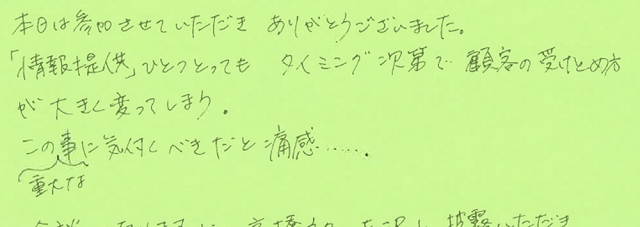 本日は参加させていただき ありがとうございました。
「情報提供」ひとつとっても タイミング次第で 顧客の受けとめ方
が大きく変ってしまう。
この事に気付くべきだと痛感……。
重大な
披露いただき